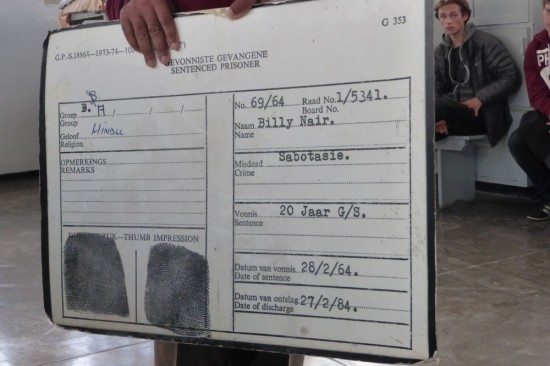 G 353
G.P.-S.18864—1973-74—100
GEVONNISTE GEVANGENE
SENTENCED PRISONER
B
Groep B. A / / /
Group
Geloof HINDU
Religion
OPMERKINGS
REMARKS
DRUK—THUMB IMPRESSION
No. 69/64 Raad No. 1/5341.
Board No.
Naam Billy Nair.
Name
Misdaad Sabotasie.
Crime
Vonnis 20 Jaar G/S.
Sentence
Datum van vonnis 28/2/64.
Date of sentence
Datum van ontslag 27/2/84.
Date of discharge
PH